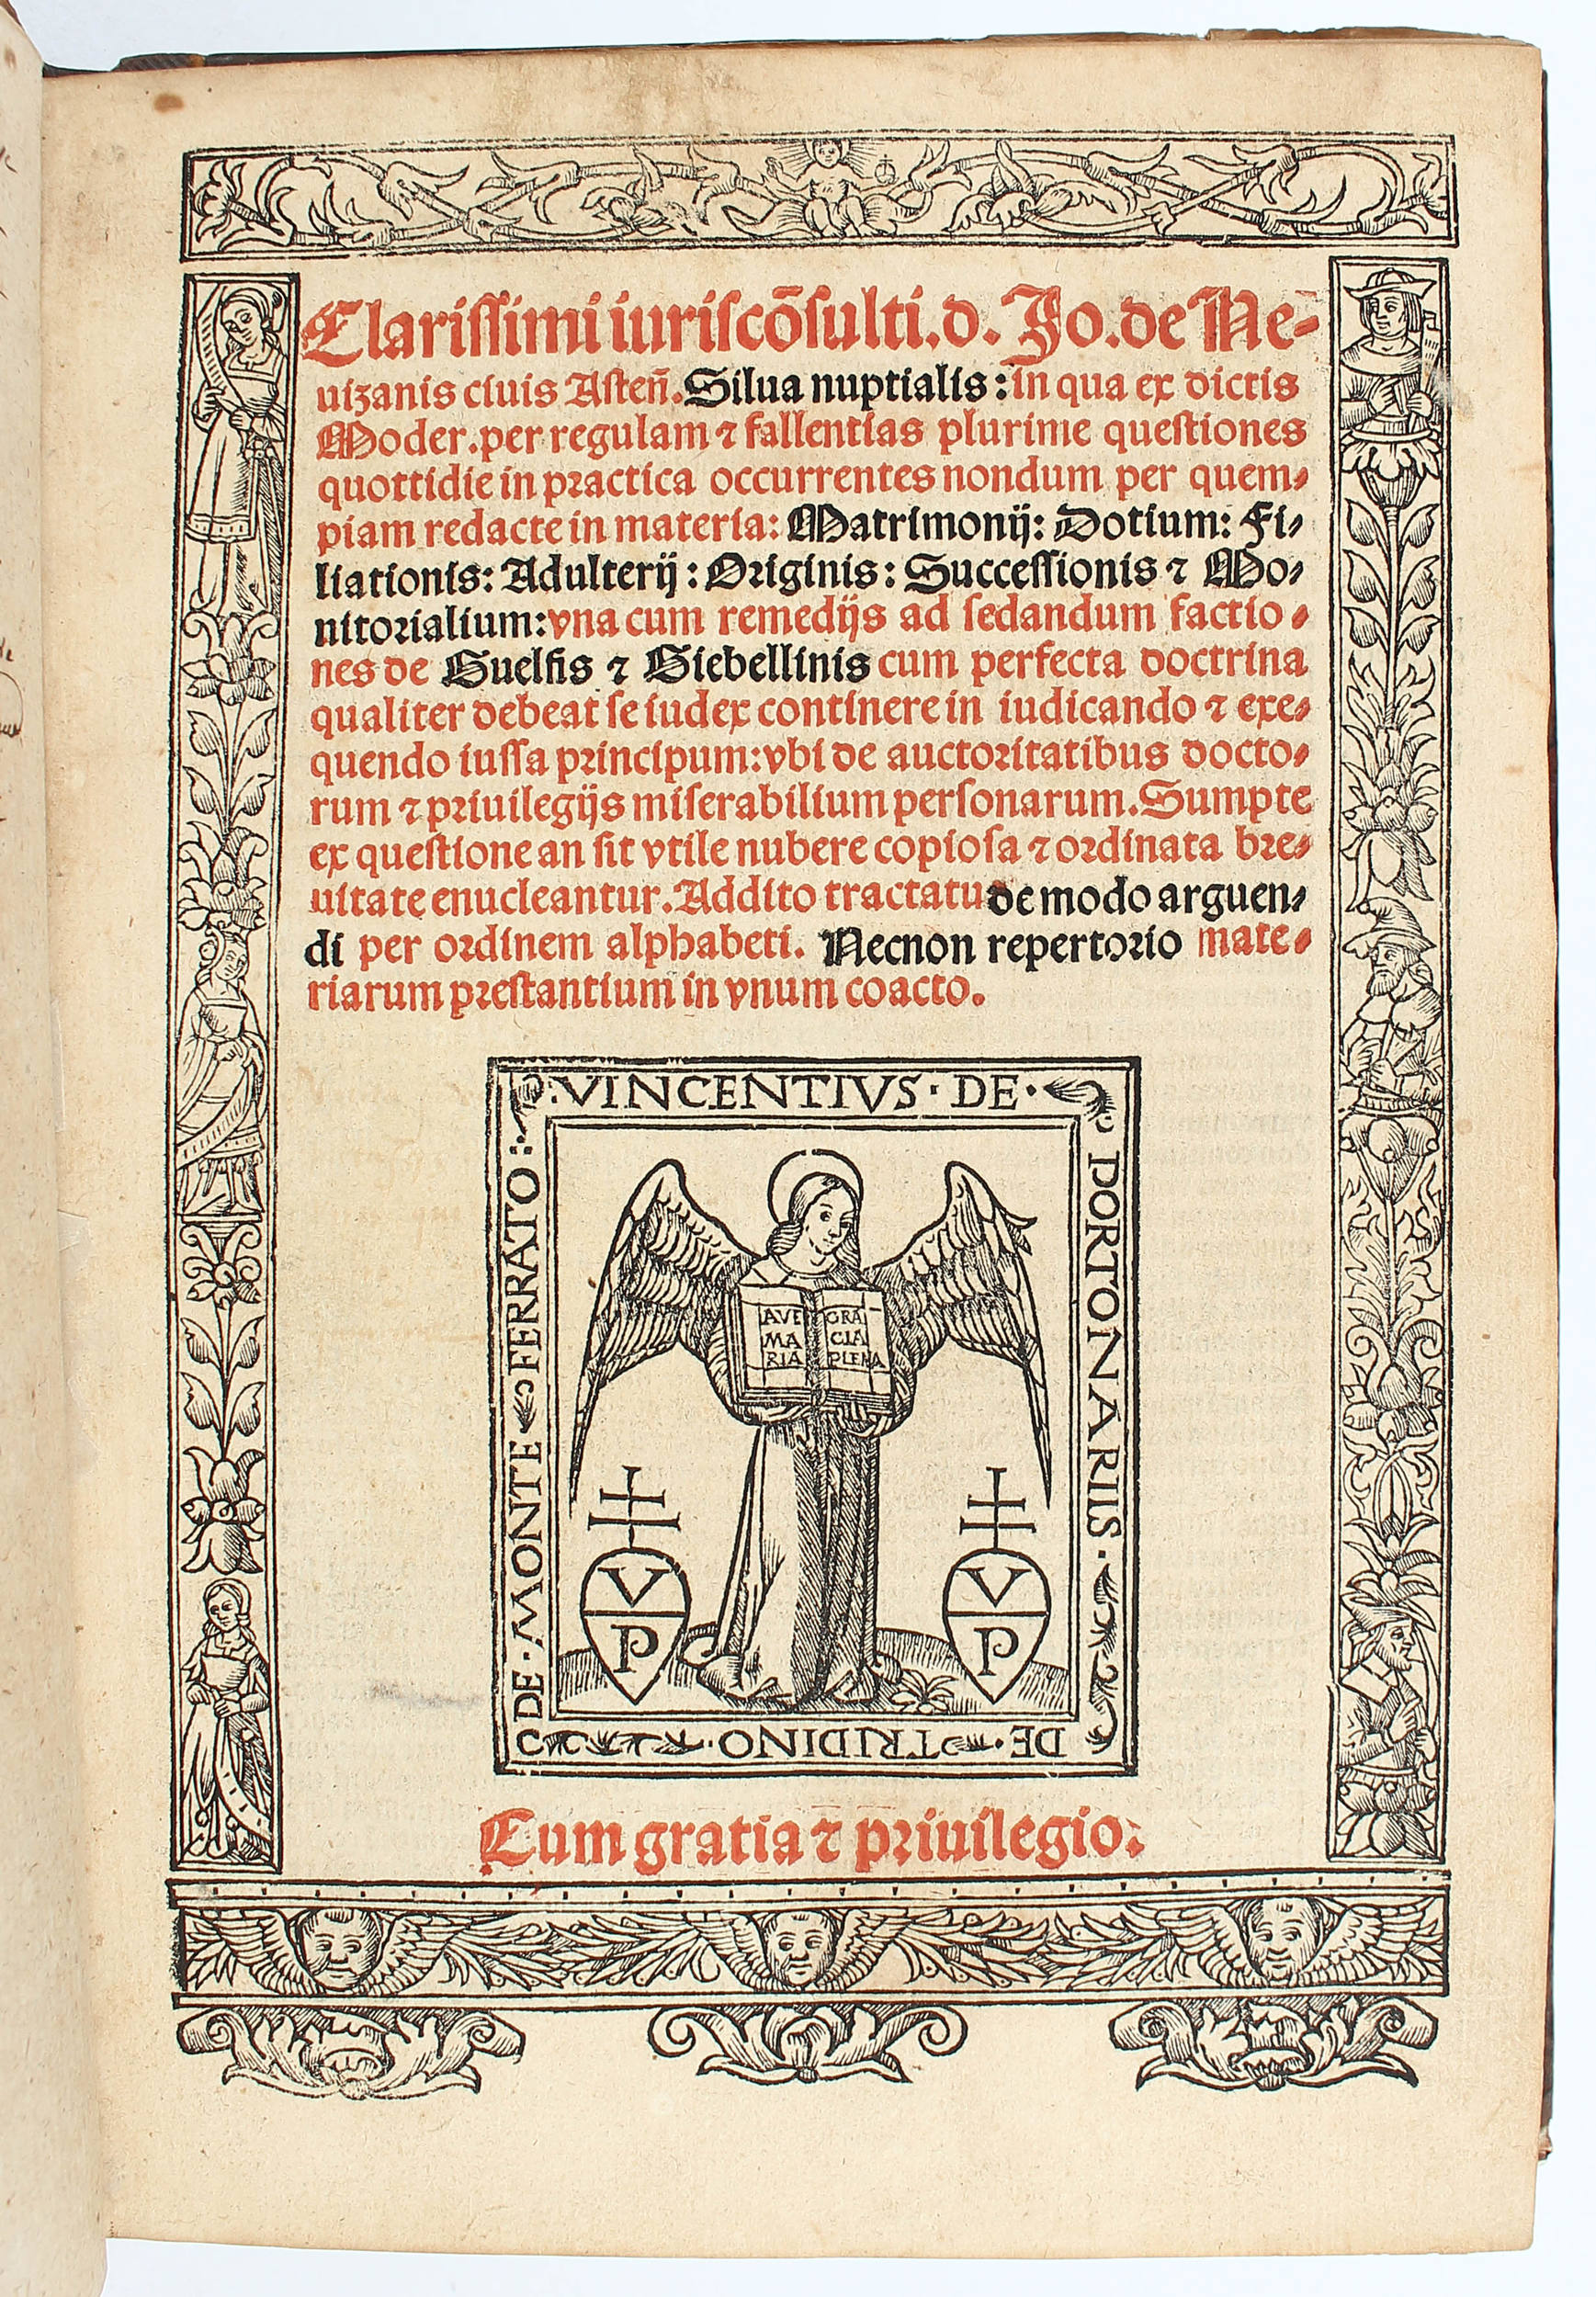 Clarissimi iuriscōsulti.d. Jo.de Ne-
uizanis ciuis Asteñ. Silua nuptialis: in qua ex dictis
Moder. per regulam ⁊ fallentias plurime questiones
quottidie in practica occurrentes nondum per quem-
piam redacte in materia: Matrimonij: Dotium: Fi-
liationis: Adulterij: Originis: Successionis ⁊ Mo-
nitorialium: vna cum remedijs ad sedandum factio-
nes de Guelfis ⁊ Giebellinis cum perfecta doctrina
qualiter debeat se iudex continere in iudicando ⁊ exe-
quendo iussa principum: vbi de auctoritatibus docto-
rum ⁊ priuilegijs miserabilium personarum. Sumpte
ex questione an sit vtile nubere copiosa ⁊ ordinata bre-
uitate enucleantur. Addito tractatu de modo arguen-
di per ordinem alphabeti. Necnon repertorio mate-
riarum prestantium in vnum coacto.
VINCENTIVS · DE ·
PORTONARIIS ·
DE · TRIDINO ·
DE · MONTE FERRATO
AVE GRA
MA CIA
RIA PLENA
V V
P P
Cum gratia ⁊ priuilegio.